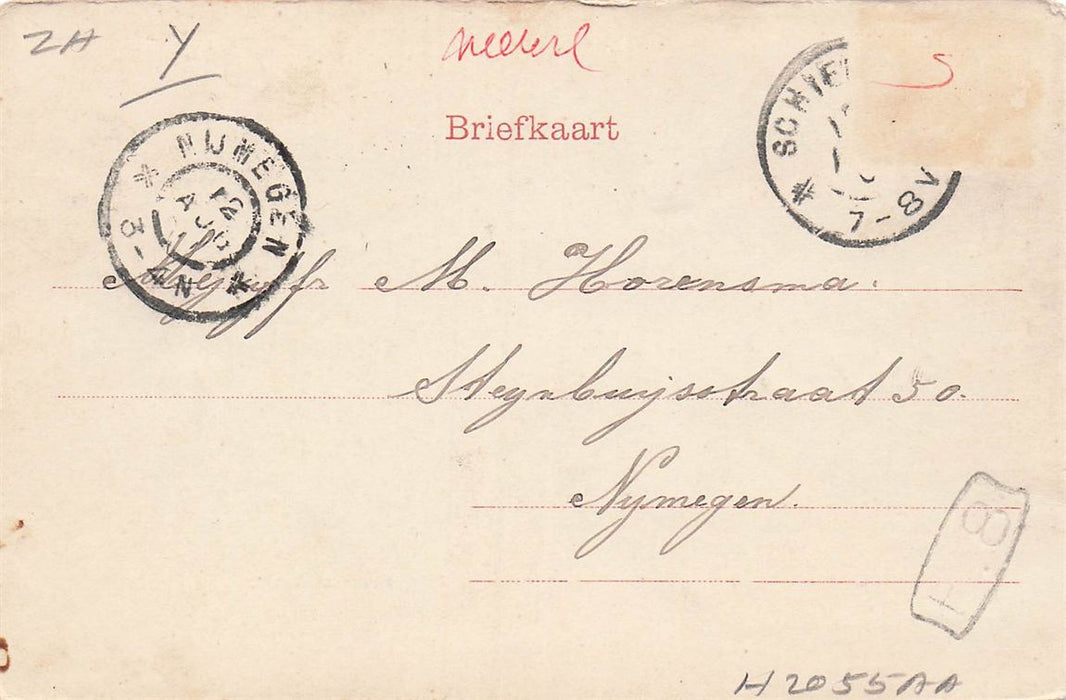 ZH Y
Nederl
S
Briefkaart
NIJMEGEN
12
3-4N
SCHIE
7-8V
Mejuffr M. Horensma.
Steynbuysstraat 50.
Nymegen.
8
H2055AA